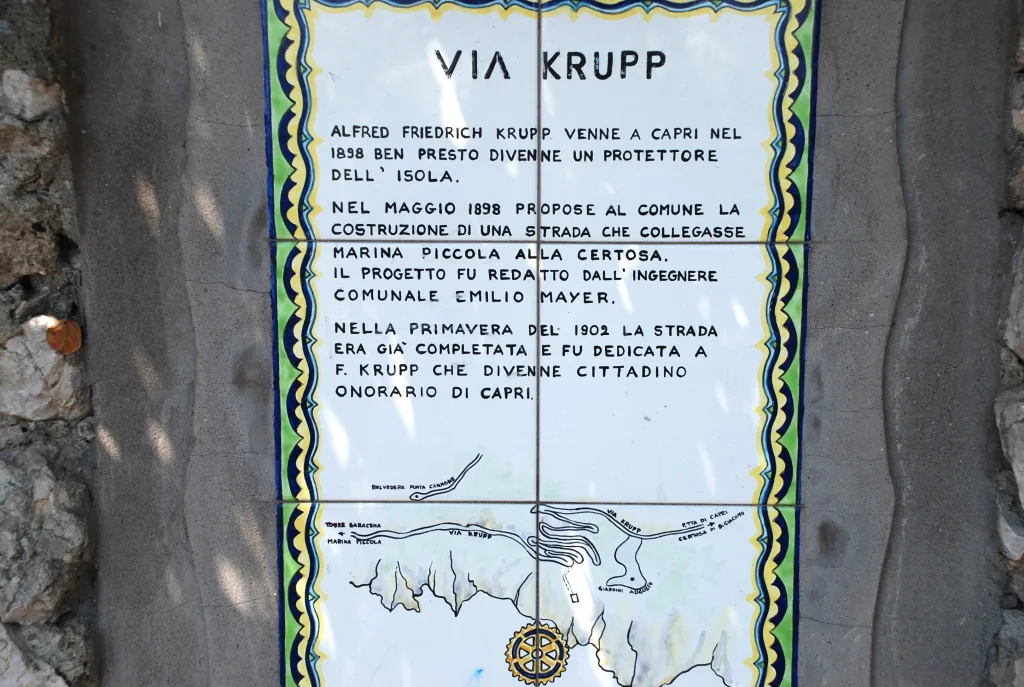 VIA KRUPP
ALFRED FRIEDRICH KRUPP VENNE A CAPRI NEL
1898 BEN PRESTO DIVENNE UN PROTETTORE
DELL' ISOLA.
NEL MAGGIO 1898 PROPOSE AL COMUNE LA
COSTRUZIONE DI UNA STRADA CHE COLLEGASSE
MARINA PICCOLA ALLA CERTOSA.
IL PROGETTO FU REDATTO DALL' INGEGNERE
COMUNALE EMILIO MAYER.
NELLA PRIMAVERA DEL 1902 LA STRADA
ERA GIA' COMPLETATA E FU DEDICATA A
F. KRUPP CHE DIVENNE CITTADINO
ONORARIO DI CAPRI.
BELVEDERE PUNTA CANNONE
TORRE SARACENA
MARINA PICCOLA
VIA KRUPP
VIA KRUPP
CERTOSA DI S. GIACOMO
GIARDINI AUGUSTO